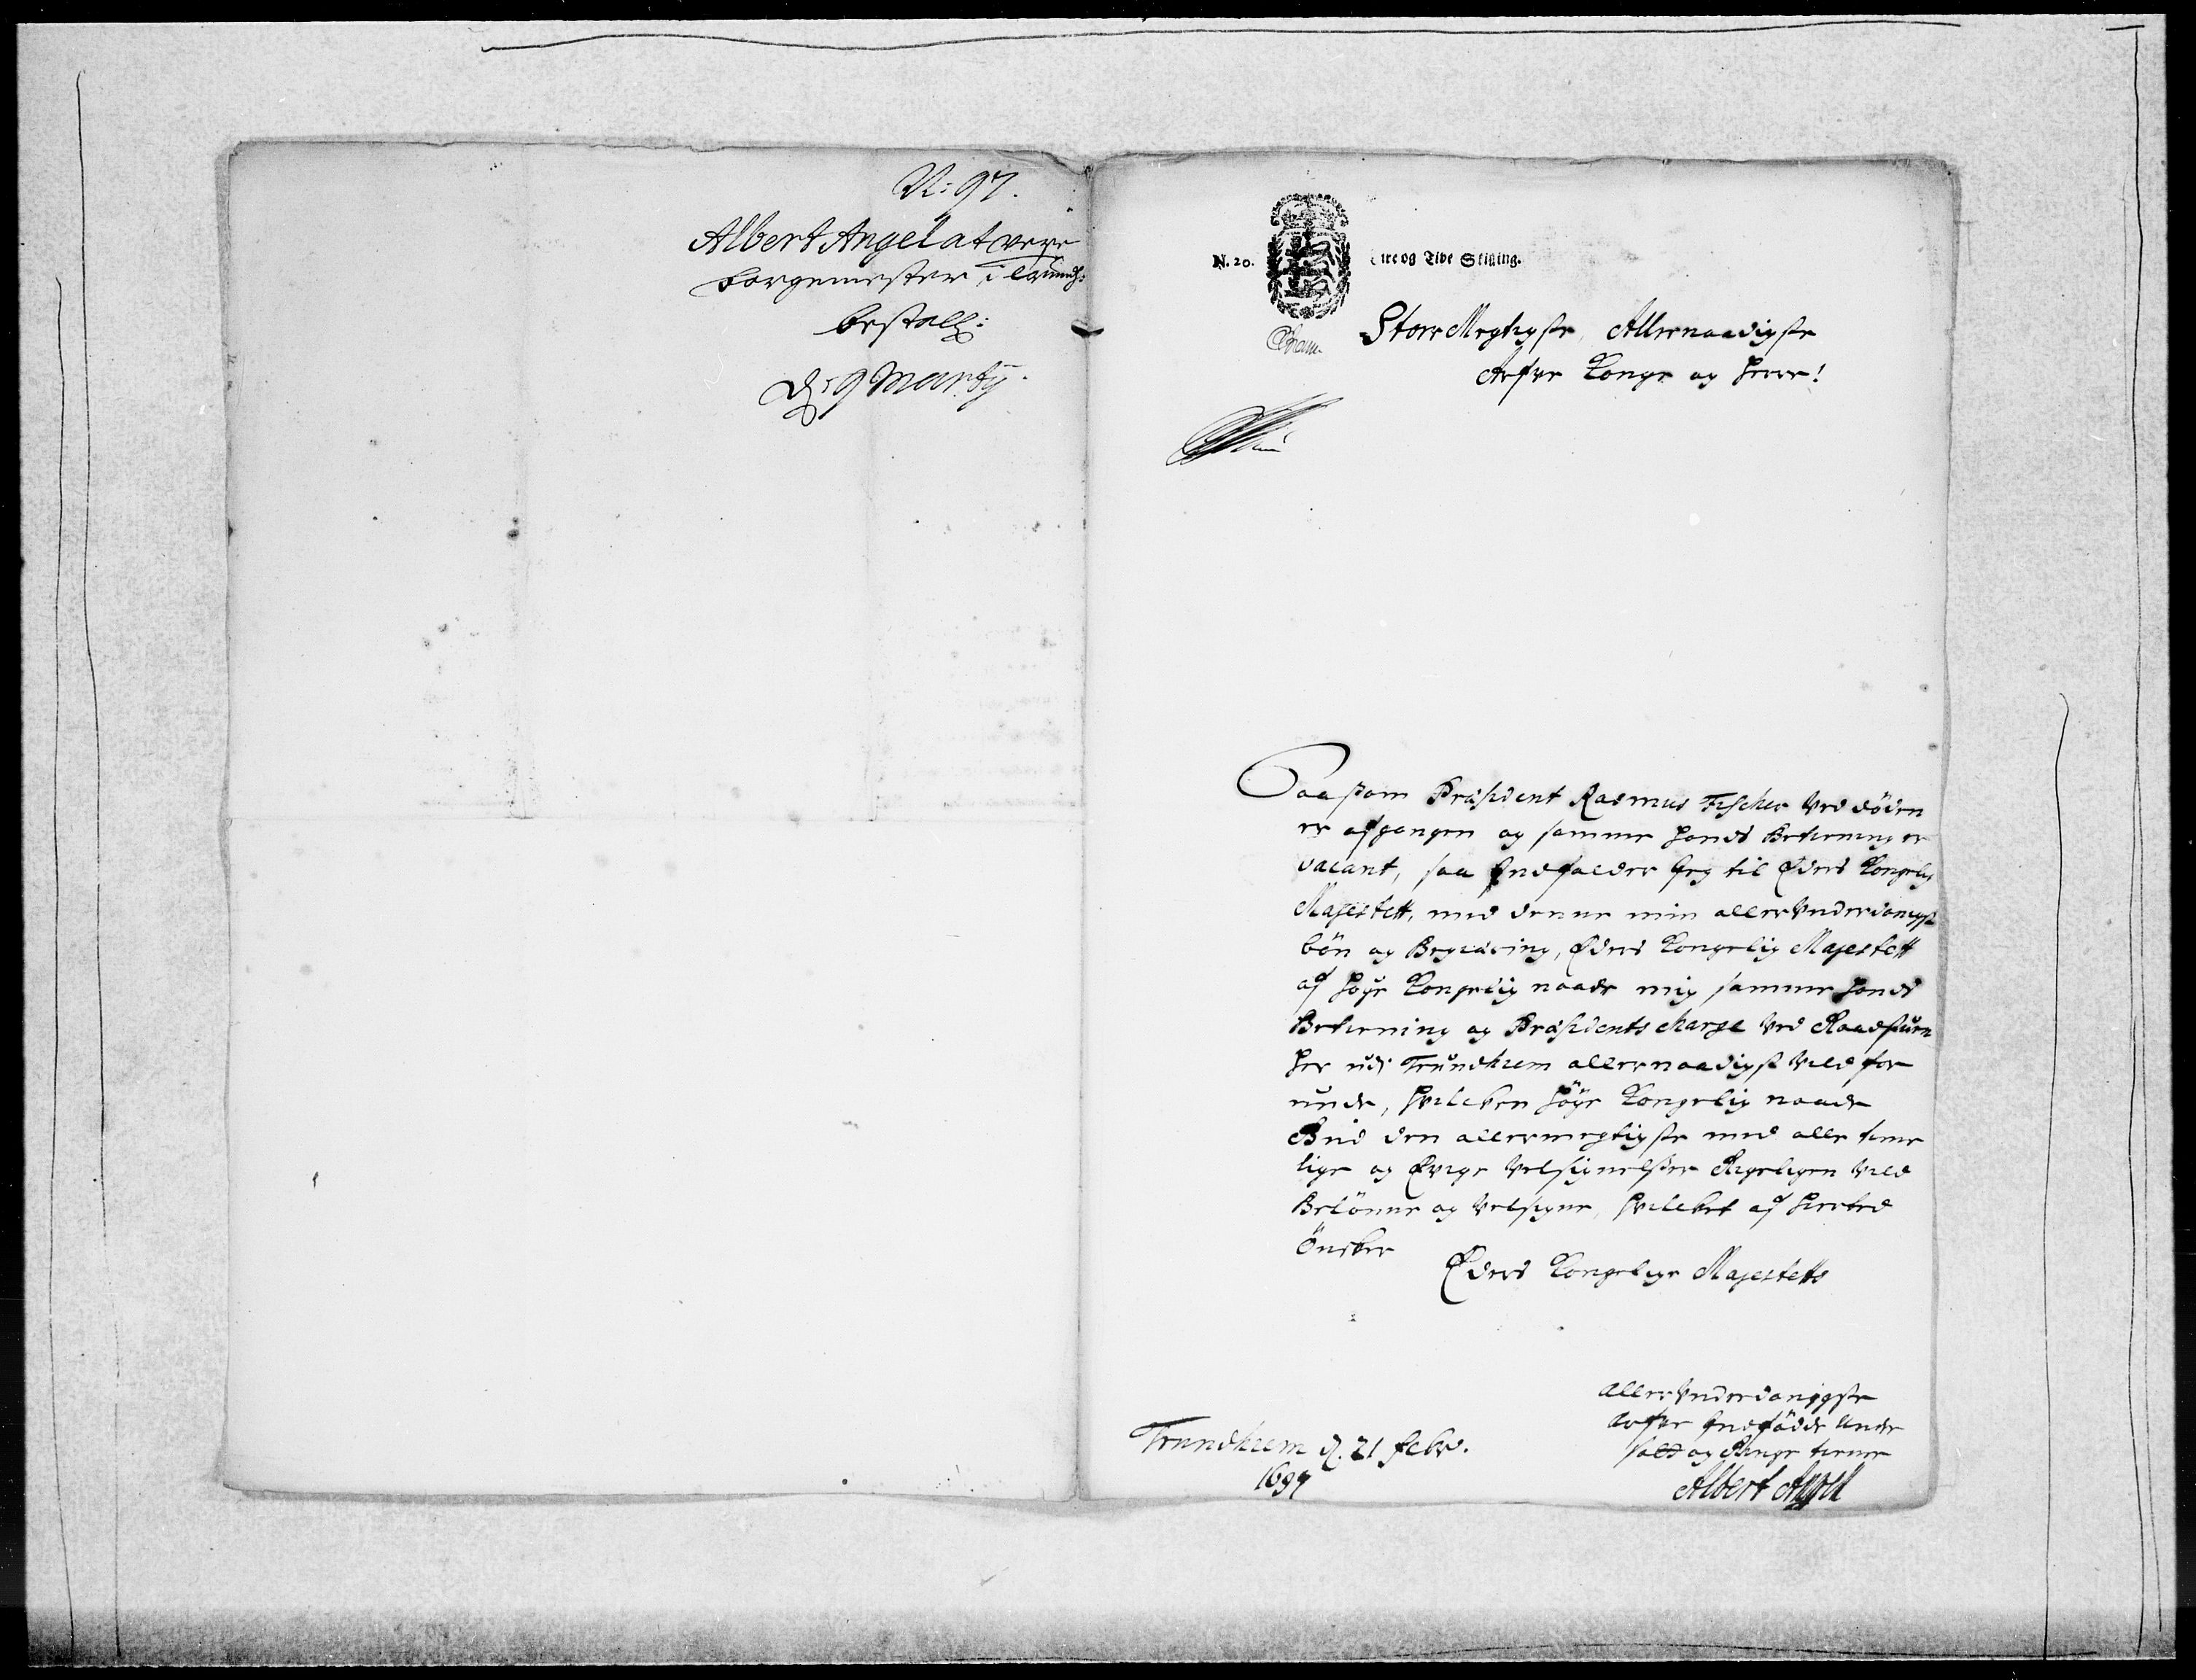 N: 97.
Albert Angel at være
borgemester i Trundh:
bestall:
D: 9 Martij.
N. 20.
Fire og Tive Skilling.
StorMegtigste, Allernaadigste
Arfve Konge og Herre!
Saasom Præsident Rasmus Fischer ved döden
er afgangen og samme hands Betiening er
vacant, saa Indfalder Jeg til Eders Kongelig
Majestett, med denne min allerUnderdanigst
bön og Begiæring, Eders Kongelig Majestett
af höye Kongelig naade mig samme hands
Betiening og Præsidents charge ved Raadstuen
her udi Trundhiem allernaadigst vild for
unde, hvilcken höye Kongelig naade
Gud den allermegtigste med alle time
lige og Evige velsignelser Rigeligen vild
Belönne og velsigne, hvilcket af hierted
önsker
Eders Kongelige Majestetts
allerUnderdanigste
arfve Indfödde Under
saad og Ringe tiener
Albert Angell
Trundhiem d. 21 febr.
1697